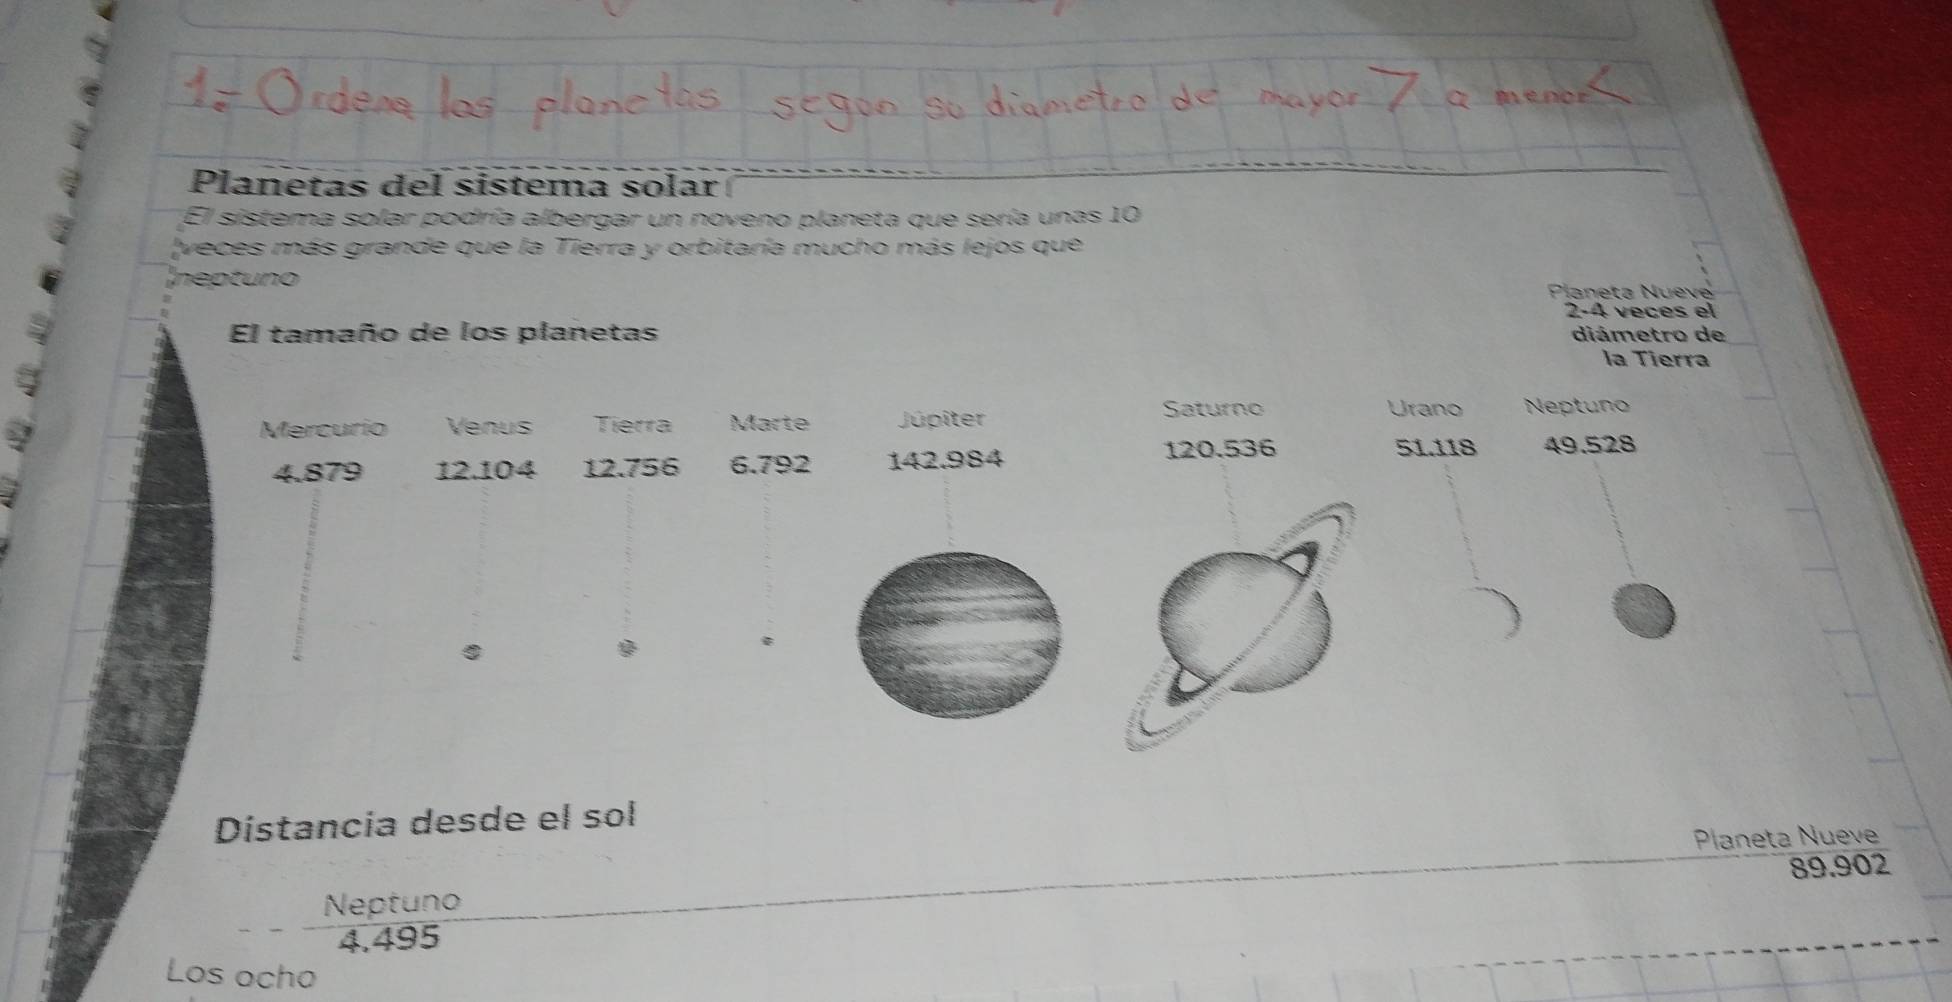 1.- Ordena los planetas segun su diametro de mayor > a menor <
Planetas del sistema solar
El sistema solar podría albergar un noveno planeta que sería unas 10
veces más grande que la Tierra y orbitaría mucho más lejos que
neptuno
Planeta Nueve
2-4 veces el
diámetro de
la Tierra
El tamaño de los planetas
Mercurio Venus Tierra Marte Júpiter Saturno Urano Neptuno
4.879 12.104 12.756 6.792 142.984 120.536 51.118 49.528
Distancia desde el sol
Planeta Nueve
89.902
Neptuno
4.495
Los ocho